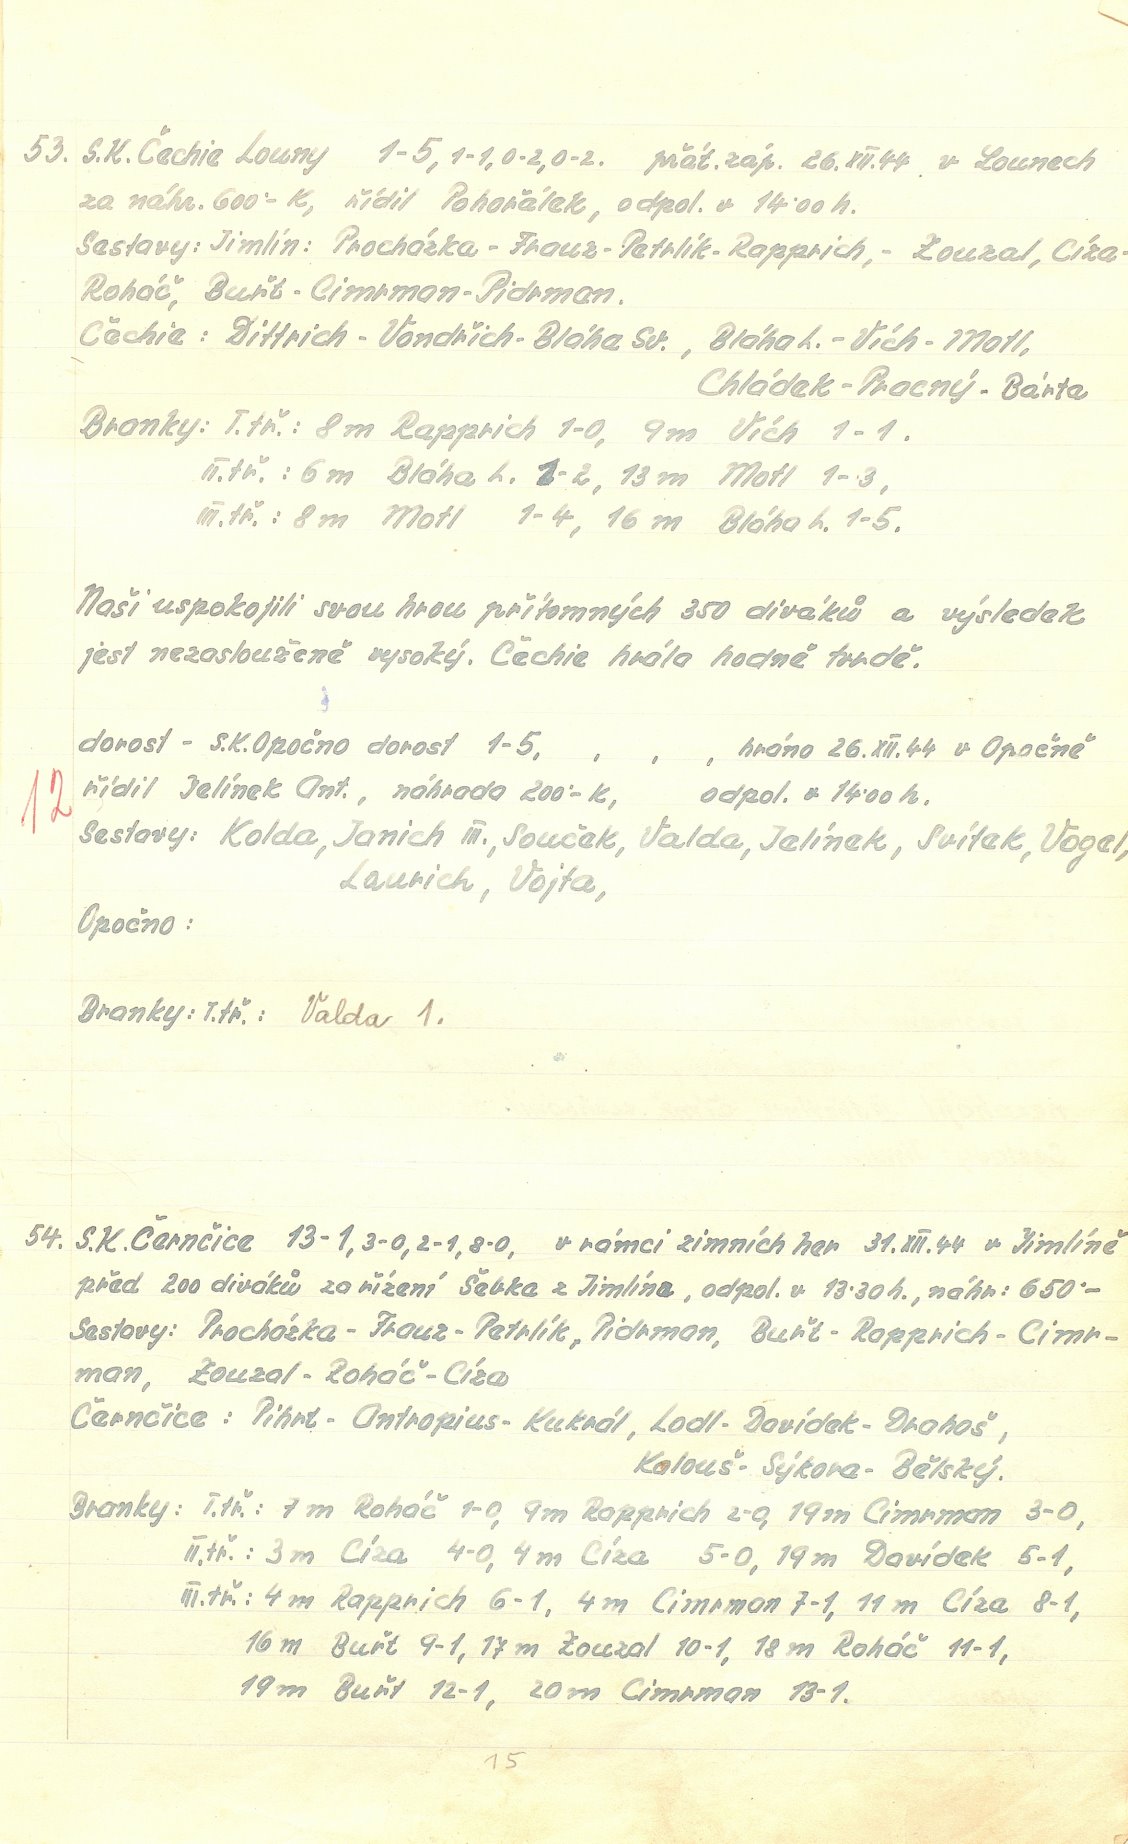 53. S.K. Čechie Louny 1-5, 1-1, 0-2, 0-2. přát. záp. 26.XII.44 v Lounech
za náhr. 600·- K, řídil Pohořálek, odpol. v 14·00 h.
Sestavy: Jimlín: Procházka - Frauz - Petrlík - Rapprich, - Zouzal, Cíza -
Roháč, Buřt - Cimrman - Pidrman.
Čechie : Dittrich - Vondřich - Bláha Sv. , Bláha L. - Vích - Motl,
Chládek - Pracný - Bárta
Branky: I.tř.: 8 m Rapprich 1-0, 9 m Vích 1-1.
II.tř. : 6 m Bláha L. 1-2, 13 m Motl 1-3,
III.tř. : 8 m Motl 1-4, 16 m Bláha L. 1-5.
Naši uspokojili svou hrou přítomných 350 diváků a výsledek
jest nezaslouženě vysoký. Čechie hrála hodně tvrdě.
dorost - S.K. Opočno dorost 1-5, , , , hráno 26.XII.44 v Opočně
12 řídil Jelínek Ant., náhrada 200·- K, odpol. v 14·00 h.
Sestavy: Kolda, Janich III., Souček, Valda, Jelínek, Svítek, Vogel,
Laurich, Vojta,
Opočno :
Branky: I.tř. : Valda 1.
54. S.K. Černčice 13-1, 3-0, 2-1, 8-0, v rámci zimních her 31.XII.44 v Jimlíně
před 200 diváků za řízení Ševka z Jimlína, odpol. v 13·30 h., náhr: 650·-
Sestavy: Procházka - Frauz - Petrlík, Pidrman, Buřt - Rapprich - Cimr-
man, Zouzal - Roháč - Cíza
Černčice : Pihrt - Antropius - Kukrál, Lodl - Davídek - Drahoš,
Kalouš - Sýkora - Bělský.
Branky: I.tř.: 7 m Roháč 1-0, 9 m Rapprich 2-0, 19 m Cimrman 3-0,
II.tř. : 3 m Cíza 4-0, 4 m Cíza 5-0, 19 m Davídek 5-1,
III.tř. : 4 m Rapprich 6-1, 4 m Cimrman 7-1, 11 m Cíza 8-1,
16 m Buřt 9-1, 17 m Zouzal 10-1, 18 m Roháč 11-1,
19 m Buřt 12-1, 20 m Cimrman 13-1.
15